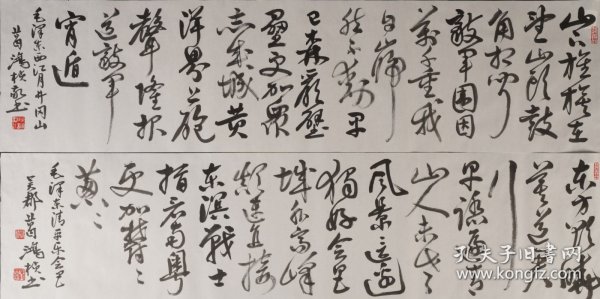 山下旌旗在
望山头鼓
角相闻
敵軍围困
萬千重我
自巋
然不動早
已森嚴壁
壘更加眾
志成城黄
洋界上砲
聲隆报
道敵軍
宵遁
毛泽东西江月井冈山
葛鸿桢书
东方欲晓
莫道君
行
早踏遍青
山人未老
风景这边
独好会昌
城外高峰
颠连直接
东溟战士
指看南粤
更加郁〻
葱〻
毛泽东清平乐会昌
吴郡葛鸿桢书
孔夫子旧书网